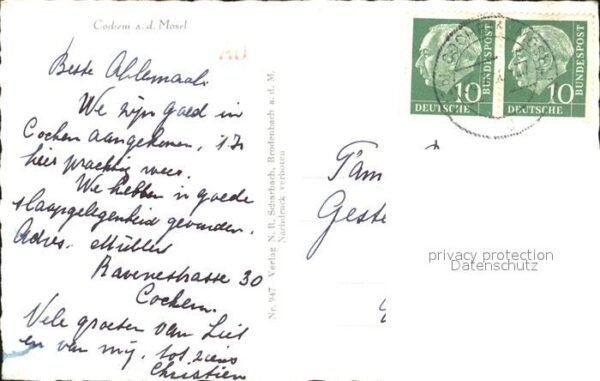 Cochem a. d. Mosel
Beste Allemaal.
We zijn goed in
Cochem aangekomen, 't Is
hier prachtig weer.
We hebben 'n goede
slaapgelegenheid gevonden.
Adres. Müller
Ravenestrasse 30
Cochem.
Vele groeten van Liet
en van mij. tot ziens
Christien
Nr. 947 Verlag N. R. Scharbach, Brodenbach a. d. M.
Nachdruck verboten
10 BUNDESPOST
DEUTSCHE
BUNDESPOST 10
DEUTSCHE
Fam
Geste
privacy protection
Datenschutz